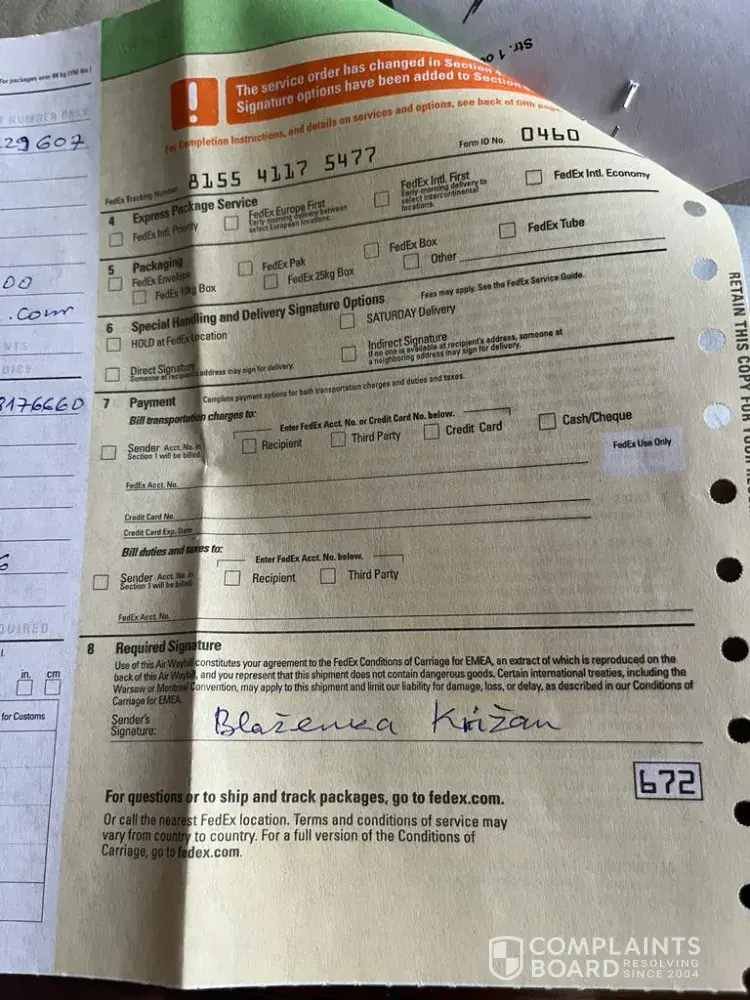 For packages over 68 kg (150 lbs.)
29607
00
.com
8176660
6
in. cm
for Customs
Str. 1 of
The service order has changed in Section
Signature options have been added to Section
For Completion Instructions, and details on services and options, see back of fifth page.
FedEx Tracking Number 8155 4117 5477 Form ID No. 0460
4 Express Package Service
FedEx Intl. Priority
FedEx Europe First
Early-morning delivery between
select European locations.
FedEx Intl. First
Early-morning delivery to
select intercontinental
locations.
FedEx Intl. Economy
5 Packaging
FedEx Envelope
FedEx Pak
FedEx Box
FedEx Tube
FedEx 10kg Box
FedEx 25kg Box
Other
6 Special Handling and Delivery Signature Options Fees may apply. See the FedEx Service Guide.
HOLD at FedEx Location
SATURDAY Delivery
Direct Signature
Someone at recipient's address may sign for delivery.
Indirect Signature
If no one is available at recipient's address, someone at
a neighboring address may sign for delivery.
7 Payment Complete payment options for both transportation charges and duties and taxes.
Bill transportation charges to:
Enter FedEx Acct. No. or Credit Card No. below.
Sender Acct. No. in
Section 1 will be billed.
Recipient
Third Party
Credit Card
Cash/Cheque
FedEx Use Only
FedEx Acct. No.
Credit Card No.
Credit Card Exp. Date
Bill duties and taxes to:
Enter FedEx Acct. No. below.
Sender Acct. No. in
Section 1 will be billed.
Recipient
Third Party
FedEx Acct. No.
8 Required Signature
Use of this Air Waybill constitutes your agreement to the FedEx Conditions of Carriage for EMEA, an extract of which is reproduced on the
back of this Air Waybill, and you represent that this shipment does not contain dangerous goods. Certain international treaties, including the
Warsaw or Montreal Convention, may apply to this shipment and limit our liability for damage, loss, or delay, as described in our Conditions of
Carriage for EMEA.
Sender's
Signature: Blaženka Križan
672
For questions or to ship and track packages, go to fedex.com.
Or call the nearest FedEx location. Terms and conditions of service may
vary from country to country. For a full version of the Conditions of
Carriage, go to fedex.com.
RETAIN THIS COPY FOR YOUR
COMPLAINTS
BOARD RESOLVING
SINCE 2004